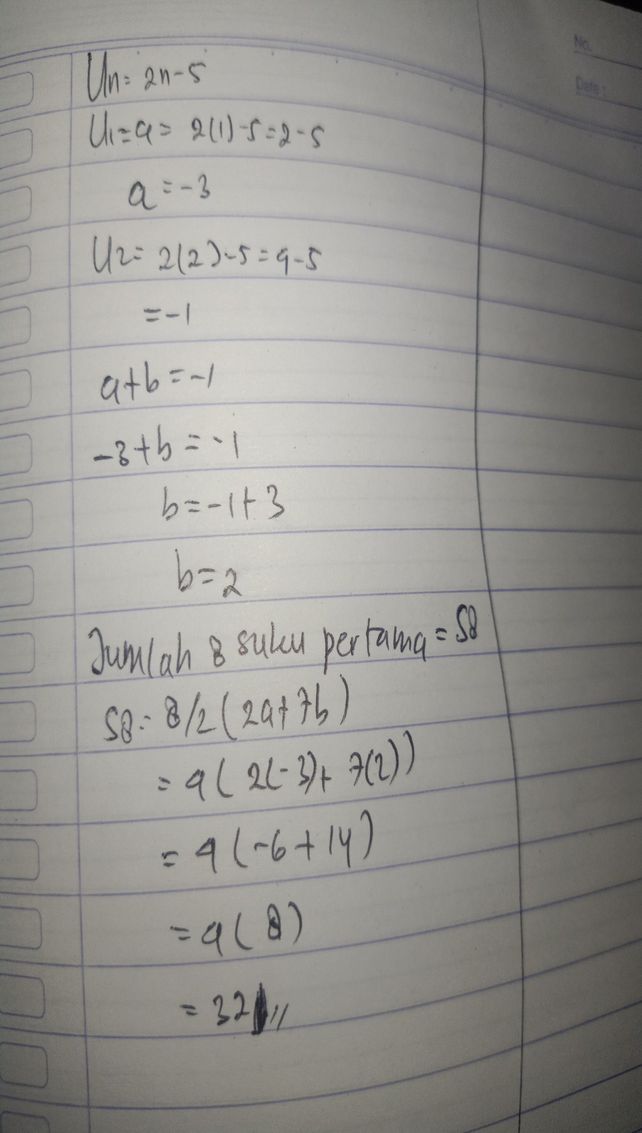 No.
Date:
Un= 2n-5
U1=a= 2(1)-5=2-5
a=-3
U2= 2(2)-5=4-5
=-1
a+b=-1
-3+b=-1
b=-1+3
b=2
Jumlah 8 suku pertama=S8
S8= 8/2(2a+7b)
=4(2(-3)+7(2))
=4(-6+14)
=4(8)
=32//